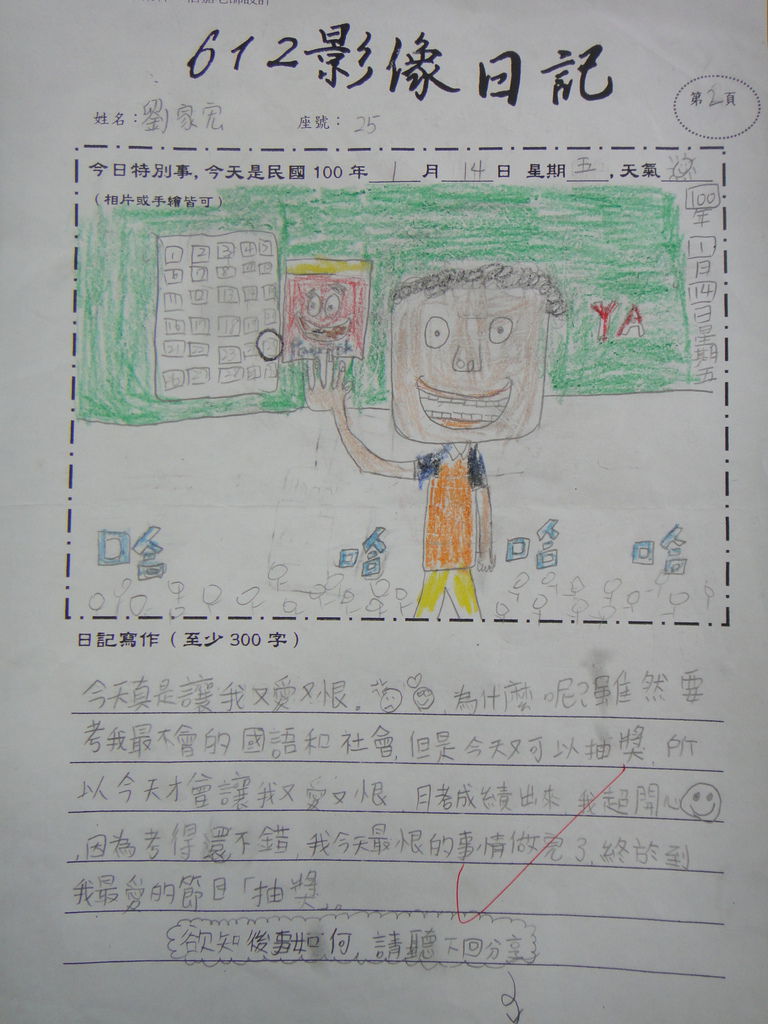 612影像日記
第2頁
姓名：劉家宏
座號：25
今日特別事，今天是民國 100 年 1 月 14 日 星期五，天氣
（相片或手繪皆可）
100年1月14日星期五
1 2 3 4 5
YA
哈 哈 哈 哈
日記寫作（至少 300 字）
今天真是讓我又愛又恨。為什麼呢？雖然要
考我最不會的國語和社會，但是今天又可以抽獎，所
以今天才會讓我又愛又恨 月考成績出來 我超開心
，因為考得還不錯，我今天最恨的事情做完了，終於到
我最愛的節目「抽獎」。
欲知後事如何，請聽下回分享